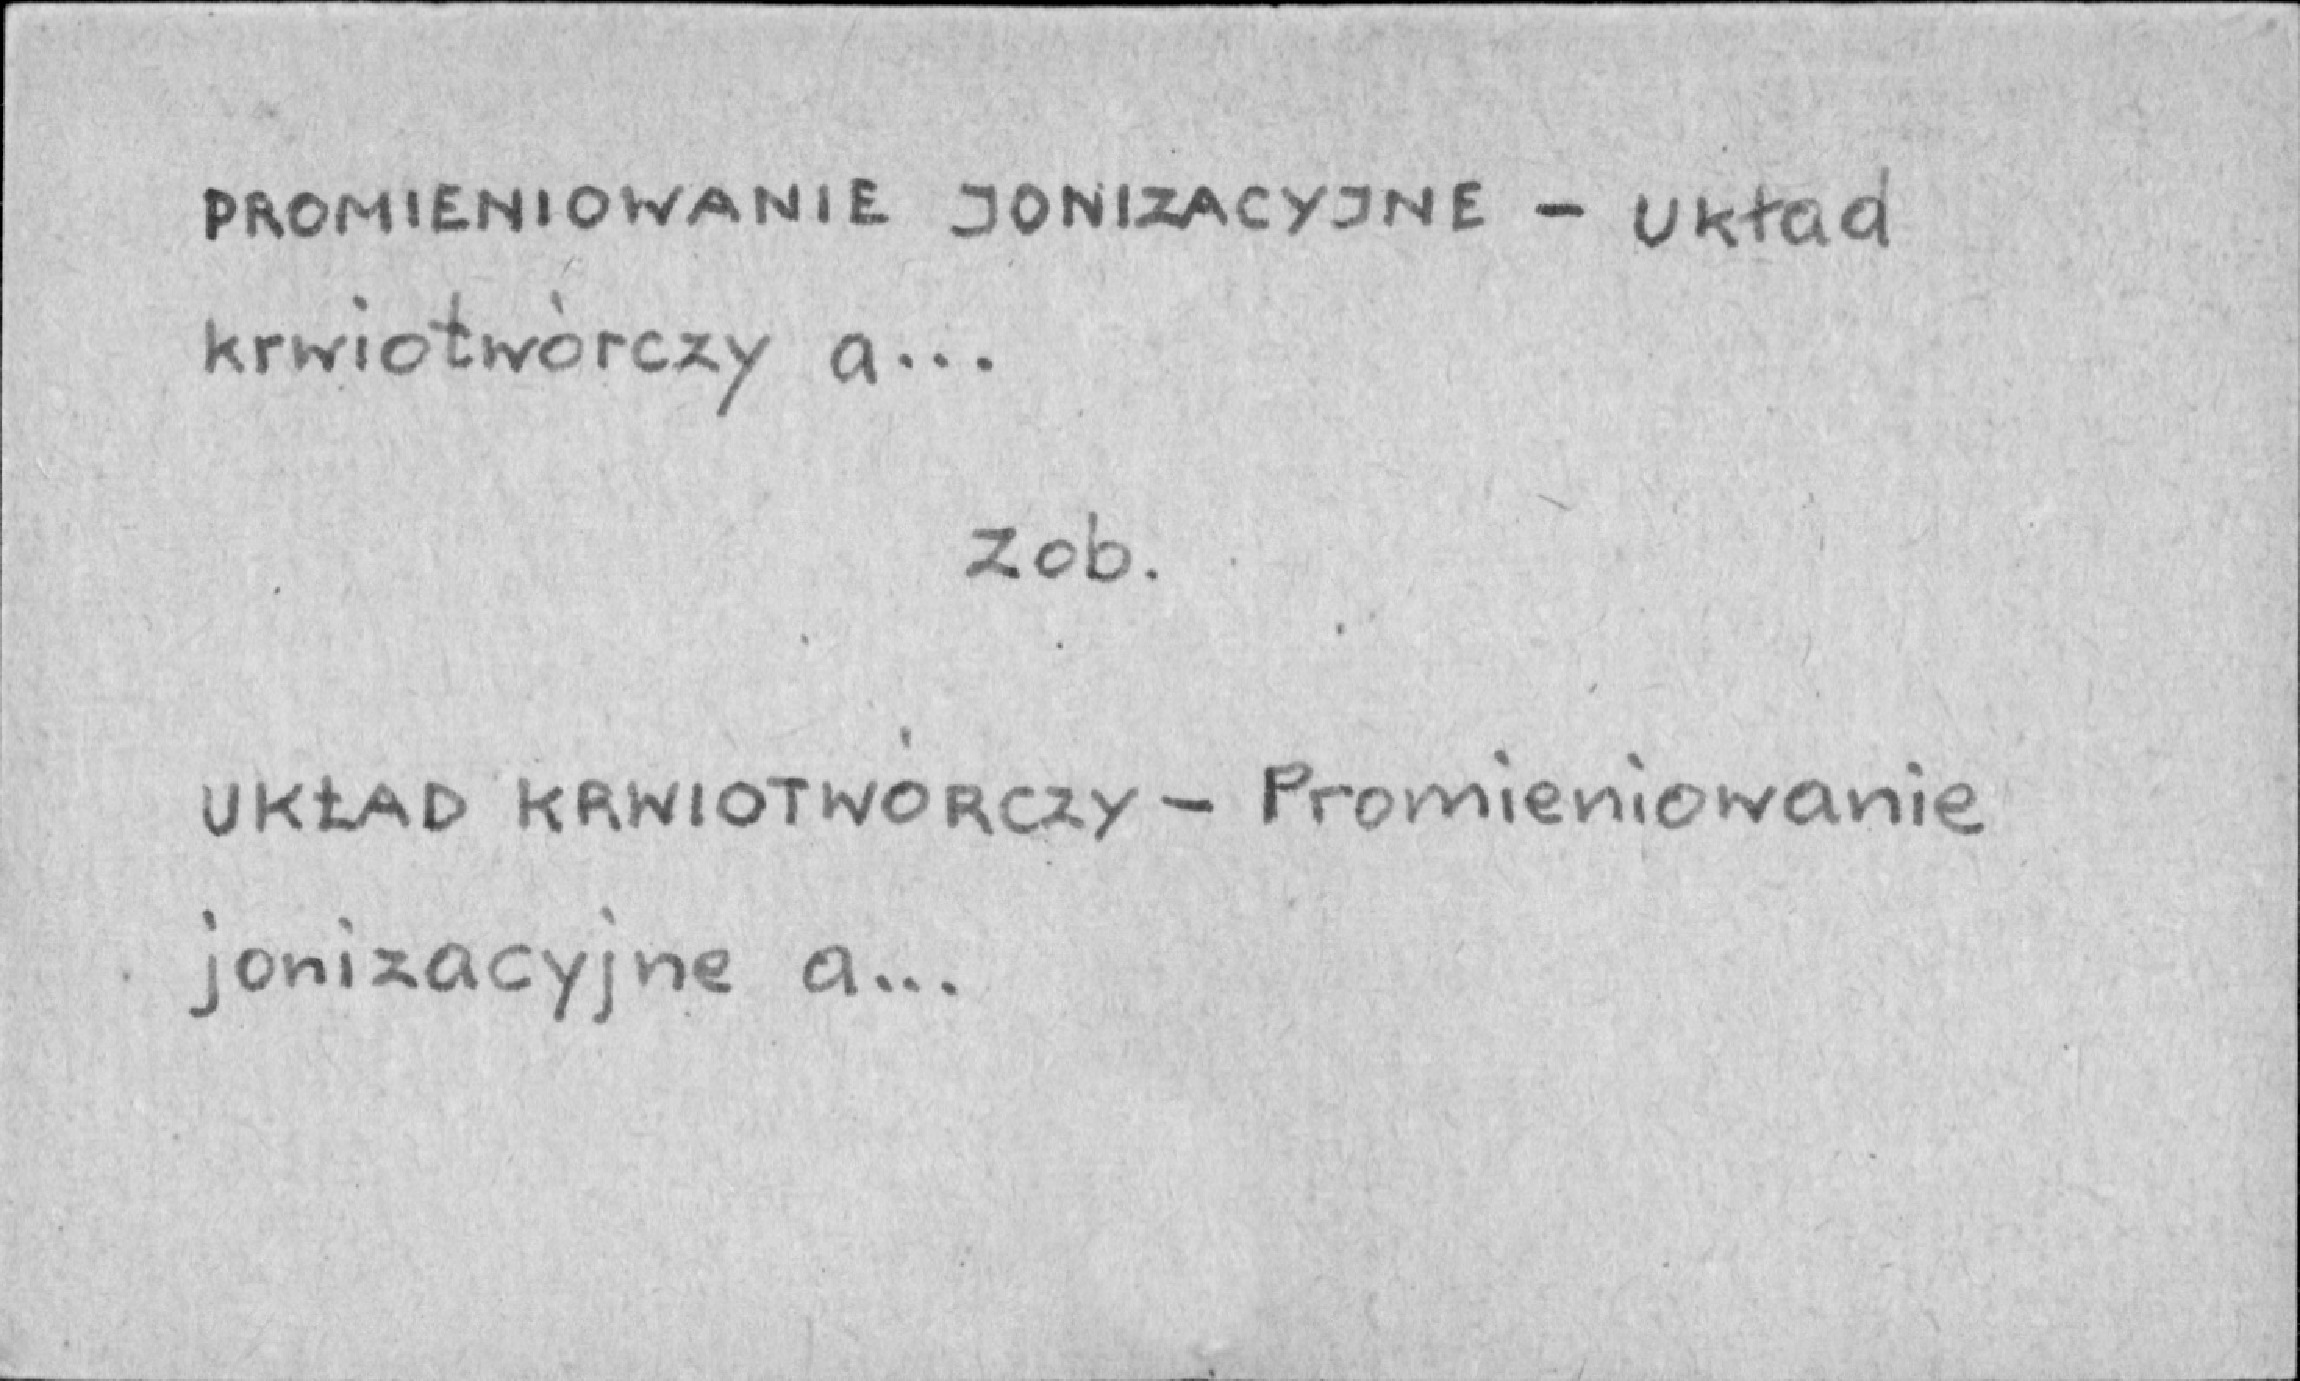 PROMIENIOWANIE JONIZACYJNE - Układ
krwiotwórczy a...
zob.
UKŁAD KRWIOTWÓRCZY - Promieniowanie
jonizacyjne a...